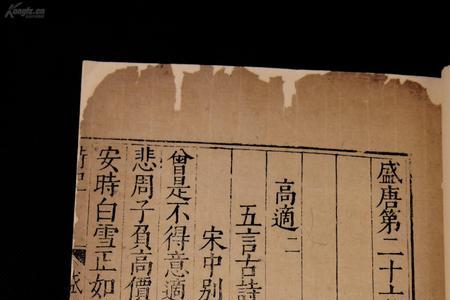 盛唐第二十六
高適二
五言古詩
宋中別
曾是不得意適
悲周子負高價
安時白雪正如
Kongfz.com